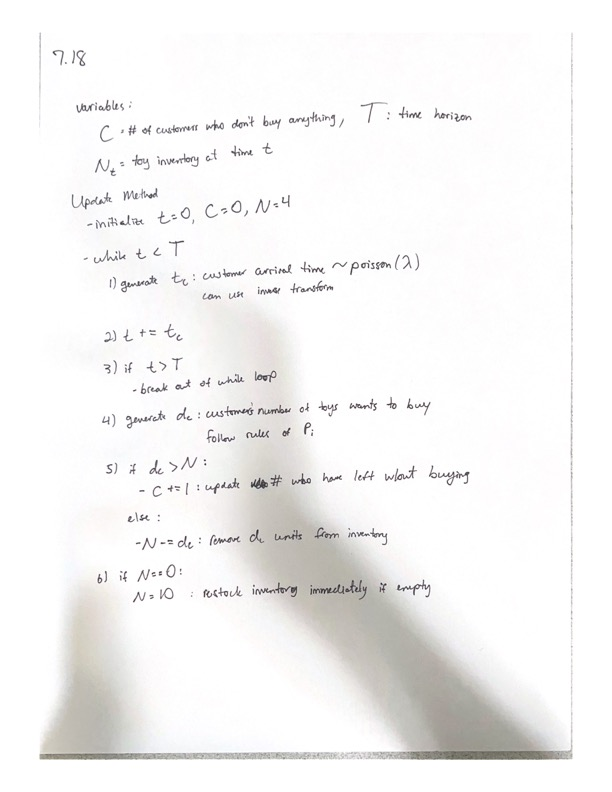 7.18
variables:
C = # of customers who don't buy anything, T: time horizon
N_t = toy inventory at time t
Update Method
- initialize t=0, C=0, N=4
- while t < T
1) generate t_c : customer arrival time ~ poisson(λ)
can use inverse transform
2) t += t_c
3) if t>T
- break out of while loop
4) generate d_c : customer's number of toys wants to buy
follow rules of P_i
5) if d_c > N :
- C += 1 : update # who have left w/out buying
else :
- N -= d_c : remove d_c units from inventory
6) if N==0:
N=10 : restock inventory immediately if empty